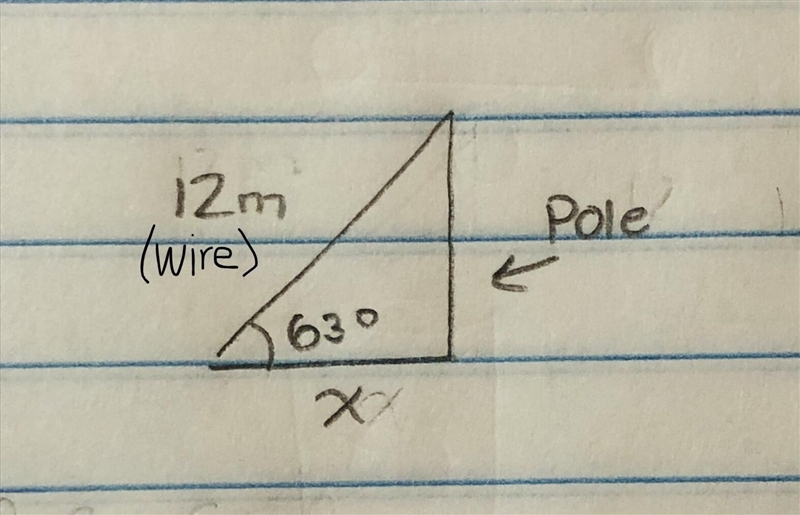 12m
(wire)
Pole
63°
x